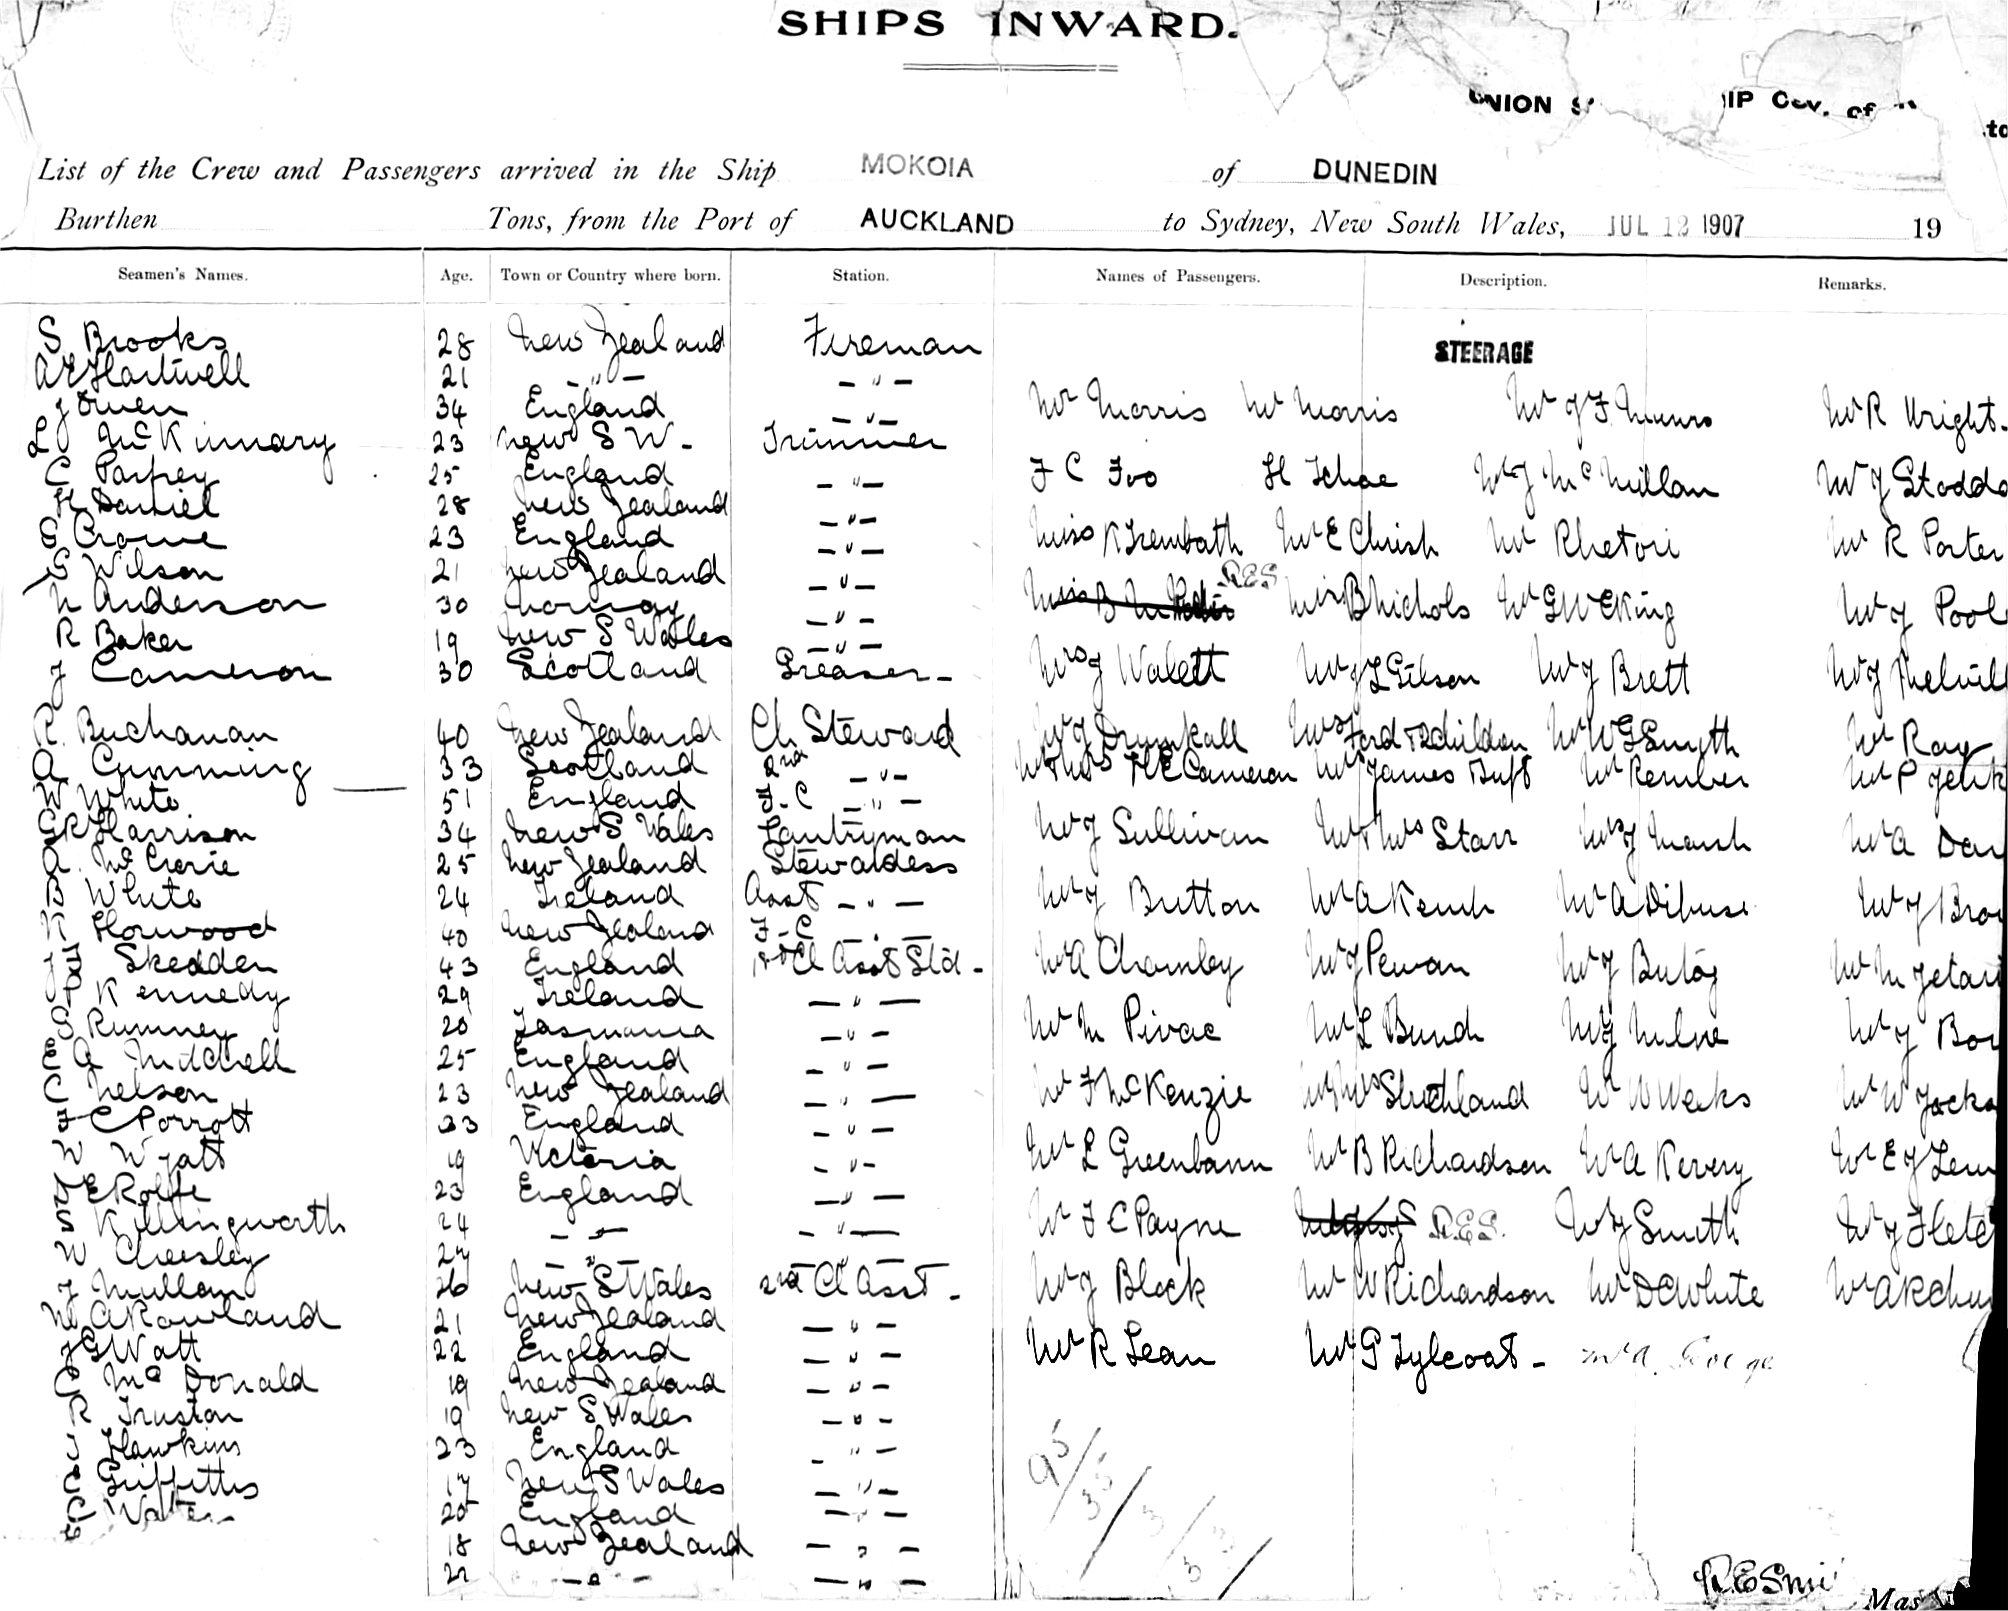 SHIPS INWARD.
UNION S IP Coy. of
List of the Crew and Passengers arrived in the Ship MOKOIA of DUNEDIN
Burthen Tons, from the Port of AUCKLAND to Sydney, New South Wales, JUL 12 1907 19
Seamen's Names. Age. Town or Country where born. Station. Names of Passengers. Description. Remarks.
STEERAGE
S Brooks 28 New Zealand Fireman
A E Hartwell 21 — " — — " —
J Owen 34 England — " — Mr Morris Mr Morris Mr J F Munro Mr R Wright
L J McKinnary 23 New S W - Trimmer
C Parfrey 25 England — " — F C Foo H Mr J McMillan Mr J Stodda
H Daniel 28 New Zealand — " —
S Crowe 23 England — " — Miss K Trembath Mr E Christ Mr Rhetori Mr R Porter
G Wilson 21 New Zealand — " — R.E.S
N Anderson 30 Norway — " — Miss B Miss B Nichols Mr G W E King Mr J Pool
R Baker 19 New S Wales — " —
J Cameron 30 Scotland Greaser - Mrs J Walett Mr J L Gilson Mr J Brett Mr J Melvill
R Buchanan 40 New Zealand Ch Steward Mr J Drumkall Mrs Ford & 2 children Mr W G Smyth Mr Ray
A Cumming 33 Scotland 2nd — " — Mr & Mrs H E Cameron Mr James Tuft Mr Kember Mr P
W White 51 England F-C — " —
G R Harrison 34 New S Wales Pantryman Mr J Sullivan Mr & Mrs Starr Mrs J Marsh Mr A Dav
A McCrorie 25 New Zealand Stewardess
B White 24 Ireland Asst — " — Mr J Button Mr A Kench Mr A Dibuse Mr J Bro
K Horwood 40 New Zealand F-C — " —
J Skedden 43 England 1st Cl Asst Std - Mr A Chamley Mr J Pewan Mr J Butoj Mr M Jetar
P Kennedy 29 Ireland — " —
S Rumney 20 Tasmania — " — Mr M Pivac Mr L Bund Mr J Milne Mr J Bo
E A Mitchell 25 England — " —
C Nelson 23 New Zealand — " — Mr F McKenzie Mr & Mrs Mr W Weeks Mr W Jacks
F C Porrott 23 England — " —
W Wyatt 19 Victoria — " — Mr L Greenbann Mr B Richardson Mr A Kerery Mr E J Lew
E Rolfe 23 England — " —
S Killingworth 24 — " — — " — Mr F C Payne R.E.S. Mr J Smith Mr J Fletc
W Cheesley 27 — " — — " —
J Mullan 26 New S Wales 2nd Cl Asst - Mr J Block Mr W Richardson Mr D C White Mr A
W A Rowland 21 New Zealand — " —
J G Watt 22 England — " — Mr R Lean Mr G Tylcoat - Mr A. George
C McDonald 19 New Zealand — " —
R Truston 19 New S Wales — " —
J Hawkins 23 England — " — 95/
C Griffiths 17 New S Wales — " — 35/
C Walter 20 England — " — 3/33/
18 New Zealand — " —
22 — " — — " —
R.E Smi
Mas